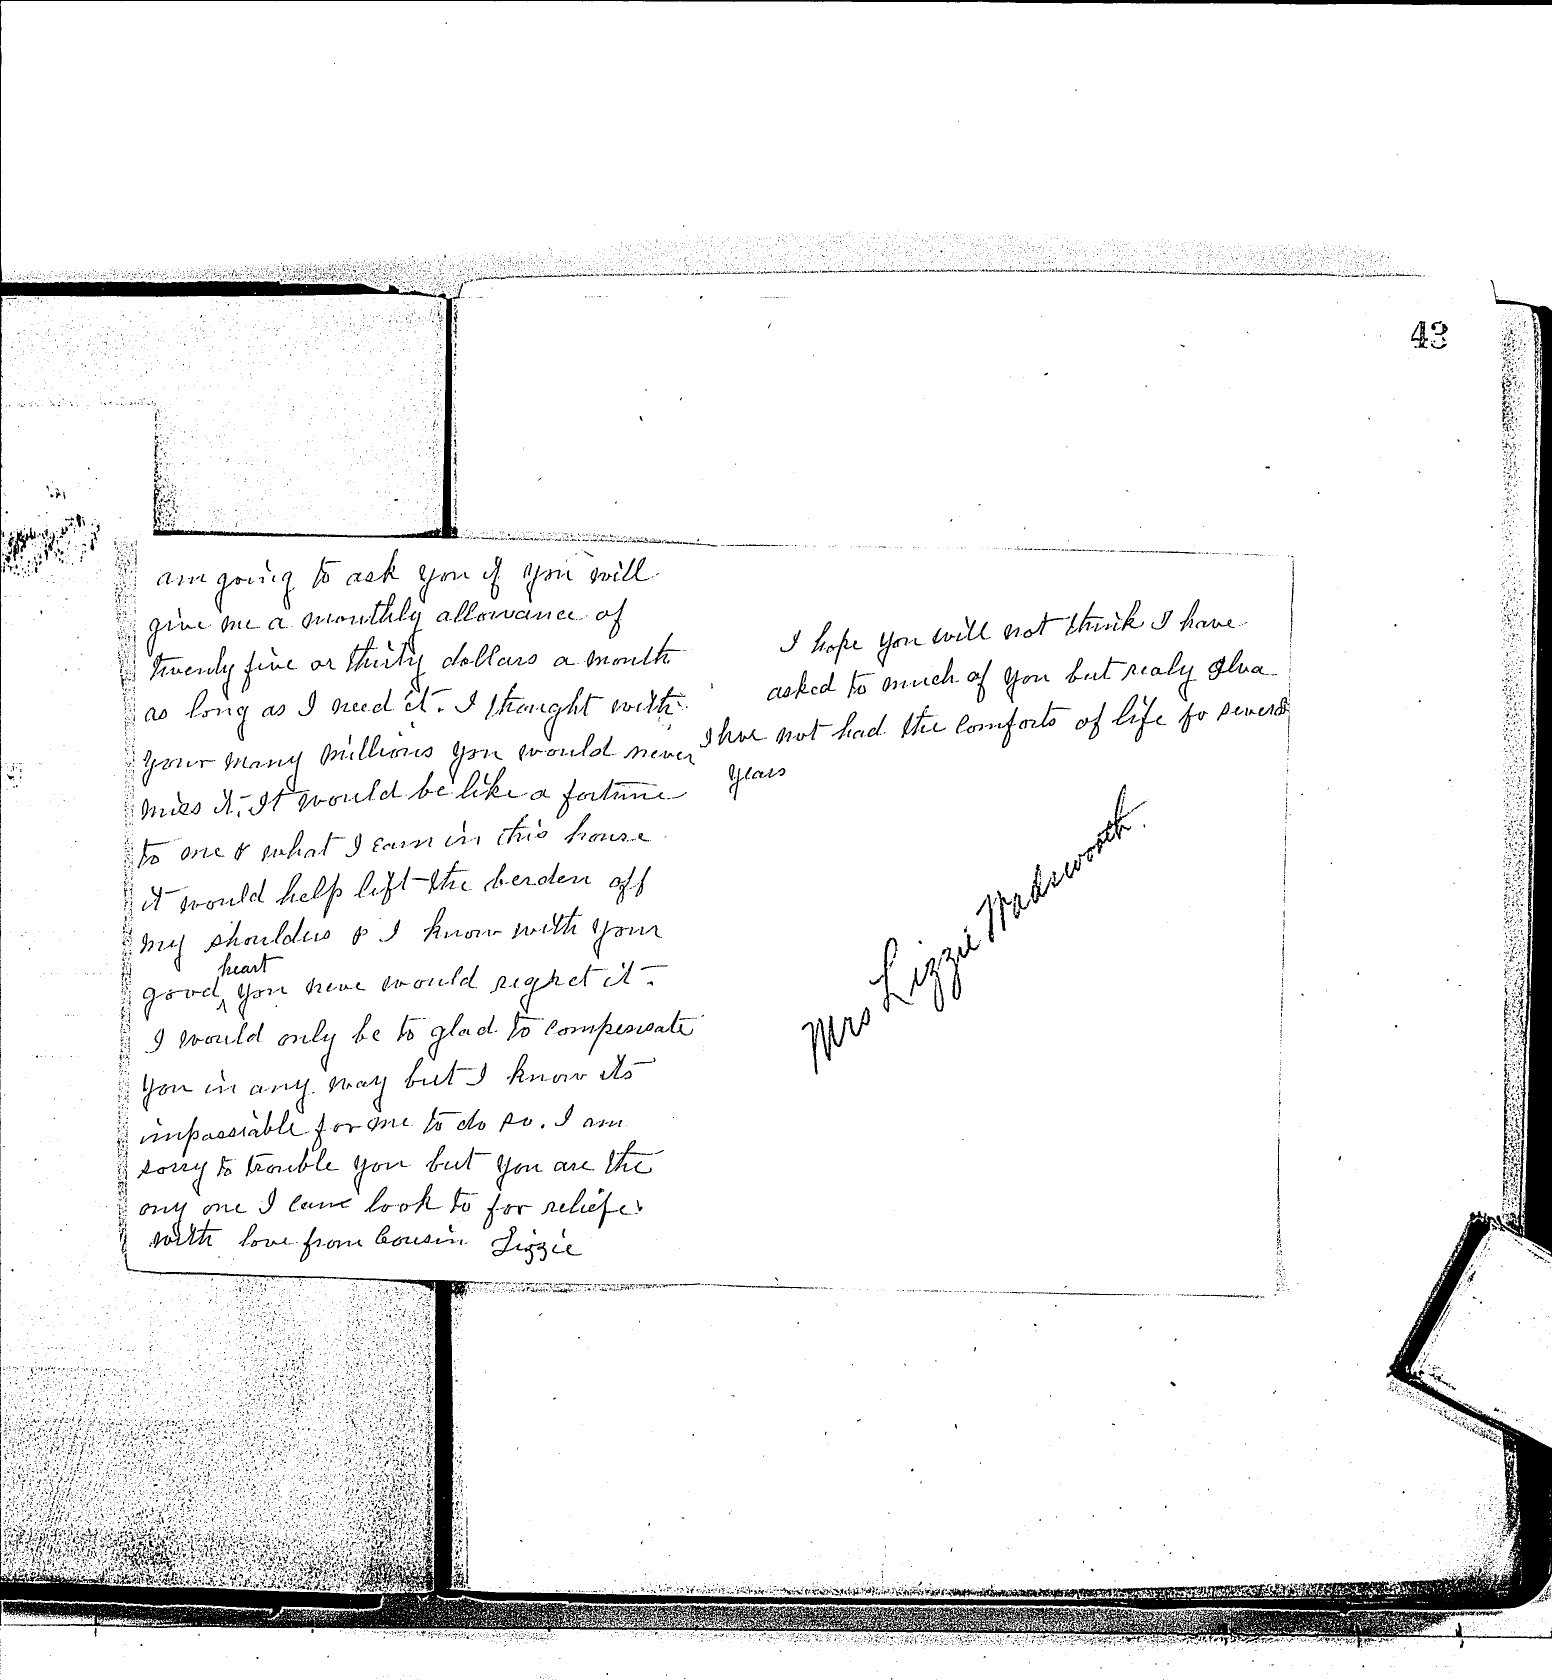 43
am going to ask you if you will
give me a monthly allowance of
twenty five or thirty dollars a month
as long as I need it. I thought with
your many millions you would never
miss it. It would be like a fortune
to me & what I earn in this house
it would help lift the berden off
my shoulders & I know with your
good heart you neve would regret it.
I would only be to glad to compensate
you in any way but I know its
impossiable for me to do so. I am
sorry to trouble you but you are the
ony one I cane look to for reliefe.
with love from Cousin Lizzie
I hope you will not think I have
asked to much of you but realy Alva
I hve not had the comforts of life fo several
years
Mrs Lizzie Wadsworth.